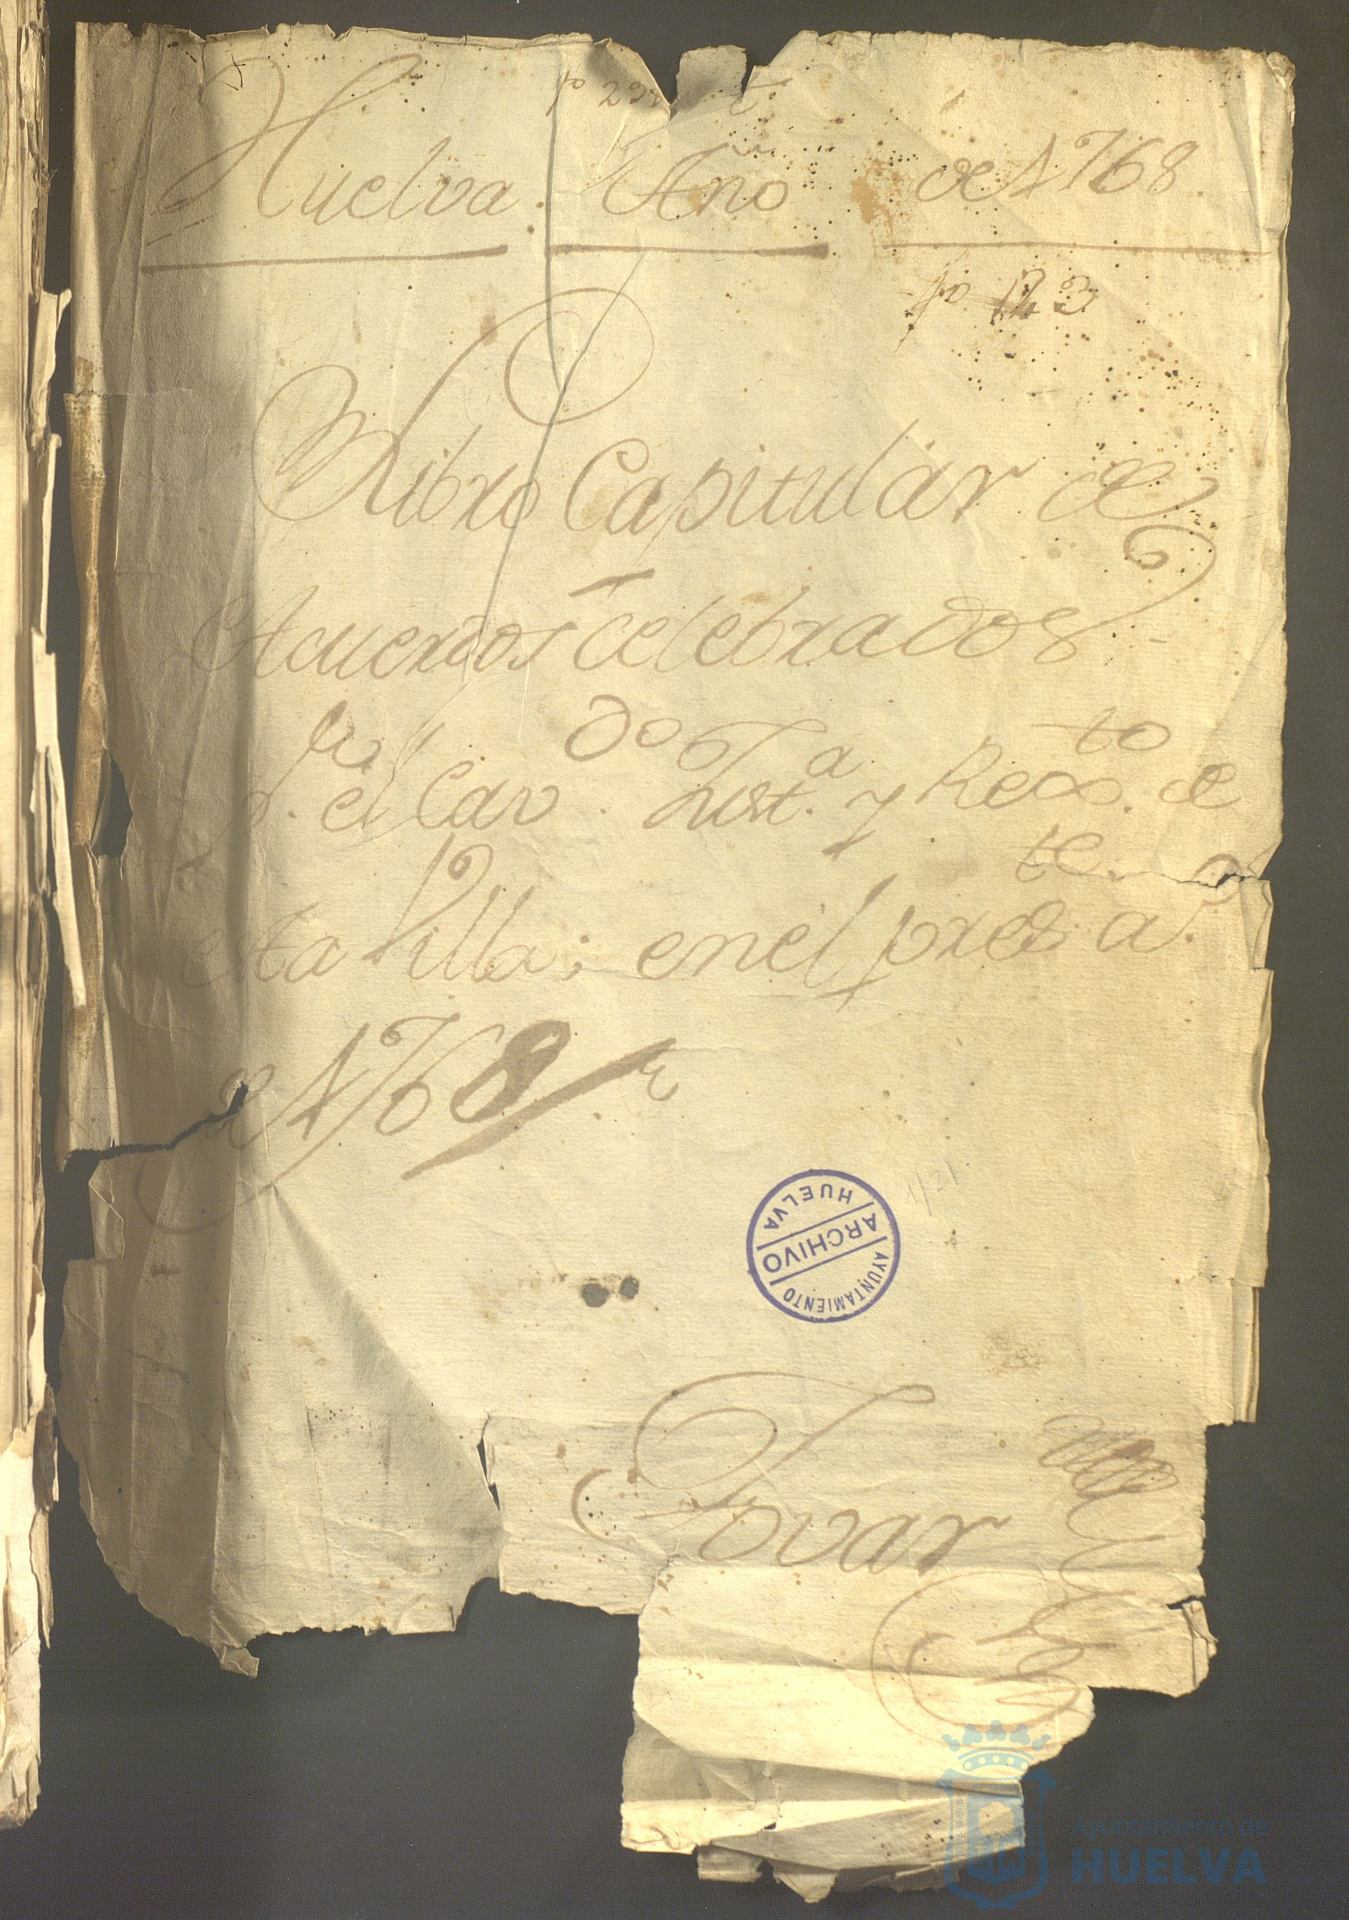 Huelva Año de 1768
fo 123
Libro Capitular de
Acuerdos celebrados
pr. el Cavdo. Justa. y Regto. de
esta Villa, en el preste. a
de 1768
AYUNTAMIENTO
ARCHIVO
HUELVA
Tovar
Ayuntamiento de
HUELVA